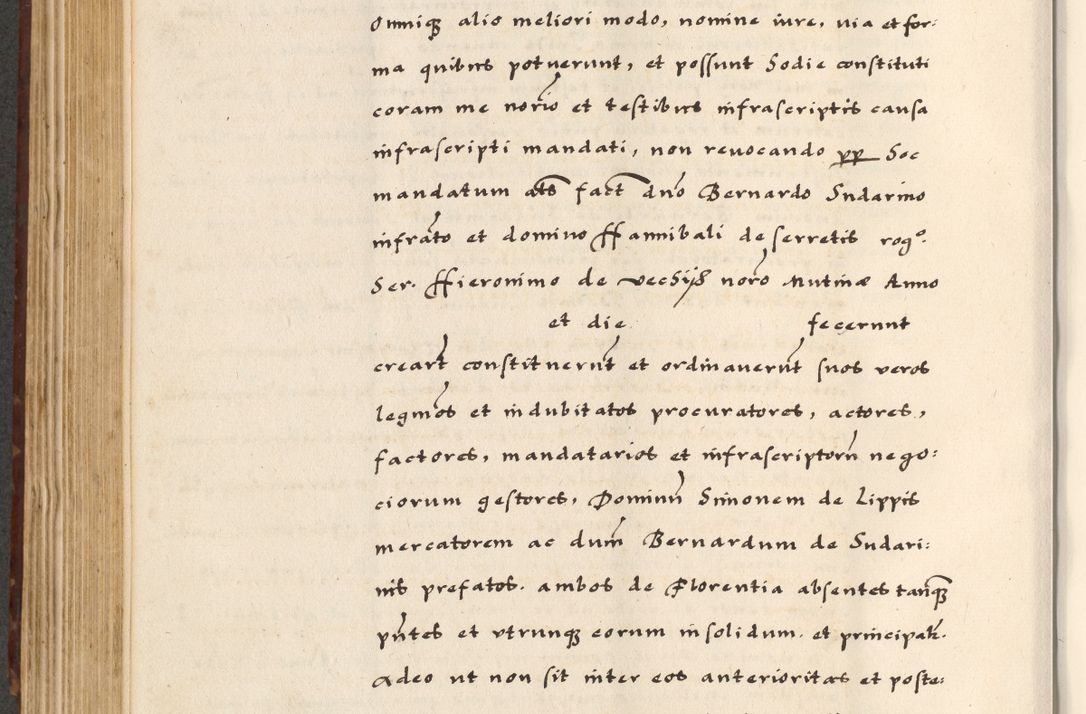 Omniq alio meliori modo, nomine iure, uia et for:
ma quibus potuerunt, et possunt hodie constituti
coram me norio et testibus infrascriptis causa
infrascripti mandati, non reuocando pp hoc
mandatum als fact dno Bernardo Sudarino
infrato et domino Hannibali de serretis rogo.
Ser. Hieronimo de vechijs noro Mutinæ Anno
et die fecerunt
creart constituernt et ordinauernt suos veros
legmos et indubitatos procuratores, actores,
factores, mandatarios et infrascriptorn nego:
ciorum gestores, Dominn Simonem de Lippis
mercatorem ac dum Bernardum de Sudari:
nis prefatos. ambos de Florentia absentes tanq
pntes et vtrunq eorum insolidum. et principalr.
Adeo ut non sit inter eos anterioritas et poste: